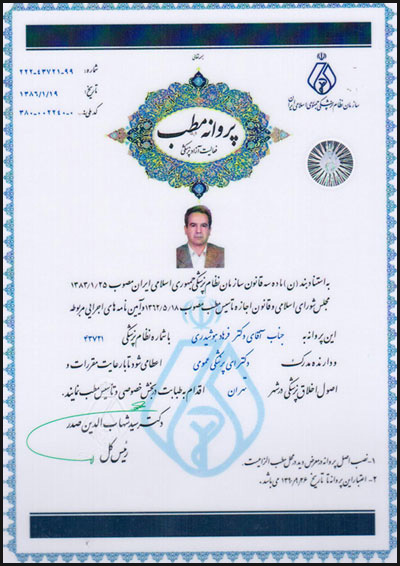 بسمه تعالی
شماره: ۲۲۲-۴۳۷۲۱-۹۹
تاریخ: ۱۳۸۶/۱/۱۹
کد ملی: ۳۸۰-۰۰۲۲۴۰-۰
سازمان نظام پزشکی جمهوری اسلامی ایران
پروانه مطب
فعالیت آزاد پزشکی
به استناد بند (ن) ماده سه قانون سازمان نظام پزشکی جمهوری اسلامی ایران مصوب ۱۳۸۳/۱/۲۵
مجلس شورای اسلامی و قانون اجازه تأسیس مطب مصوب ۱۳۶۲/۵/۱۸ و آیین نامه های اجرایی مربوطه
این پروانه به جناب آقای دکتر فرهاد هوشیدری با شماره نظام پزشکی ۴۳۷۲۱
و دارنده مدرک دکترای پزشکی عمومی اعطا می شود تا با رعایت مقررات و
اصول اخلاق پزشکی در شهر تهران اقدام به طبابت در بخش خصوصی و تأسیس مطب نمایند.
دکتر سید شهاب الدین صدر
رئیس کل
۱- نصب اصل پروانه در معرض دید در محل مطب الزامیست.
۲- اعتبار این پروانه تا تاریخ ۱۳۹۰/۹/۲۶ می باشد.